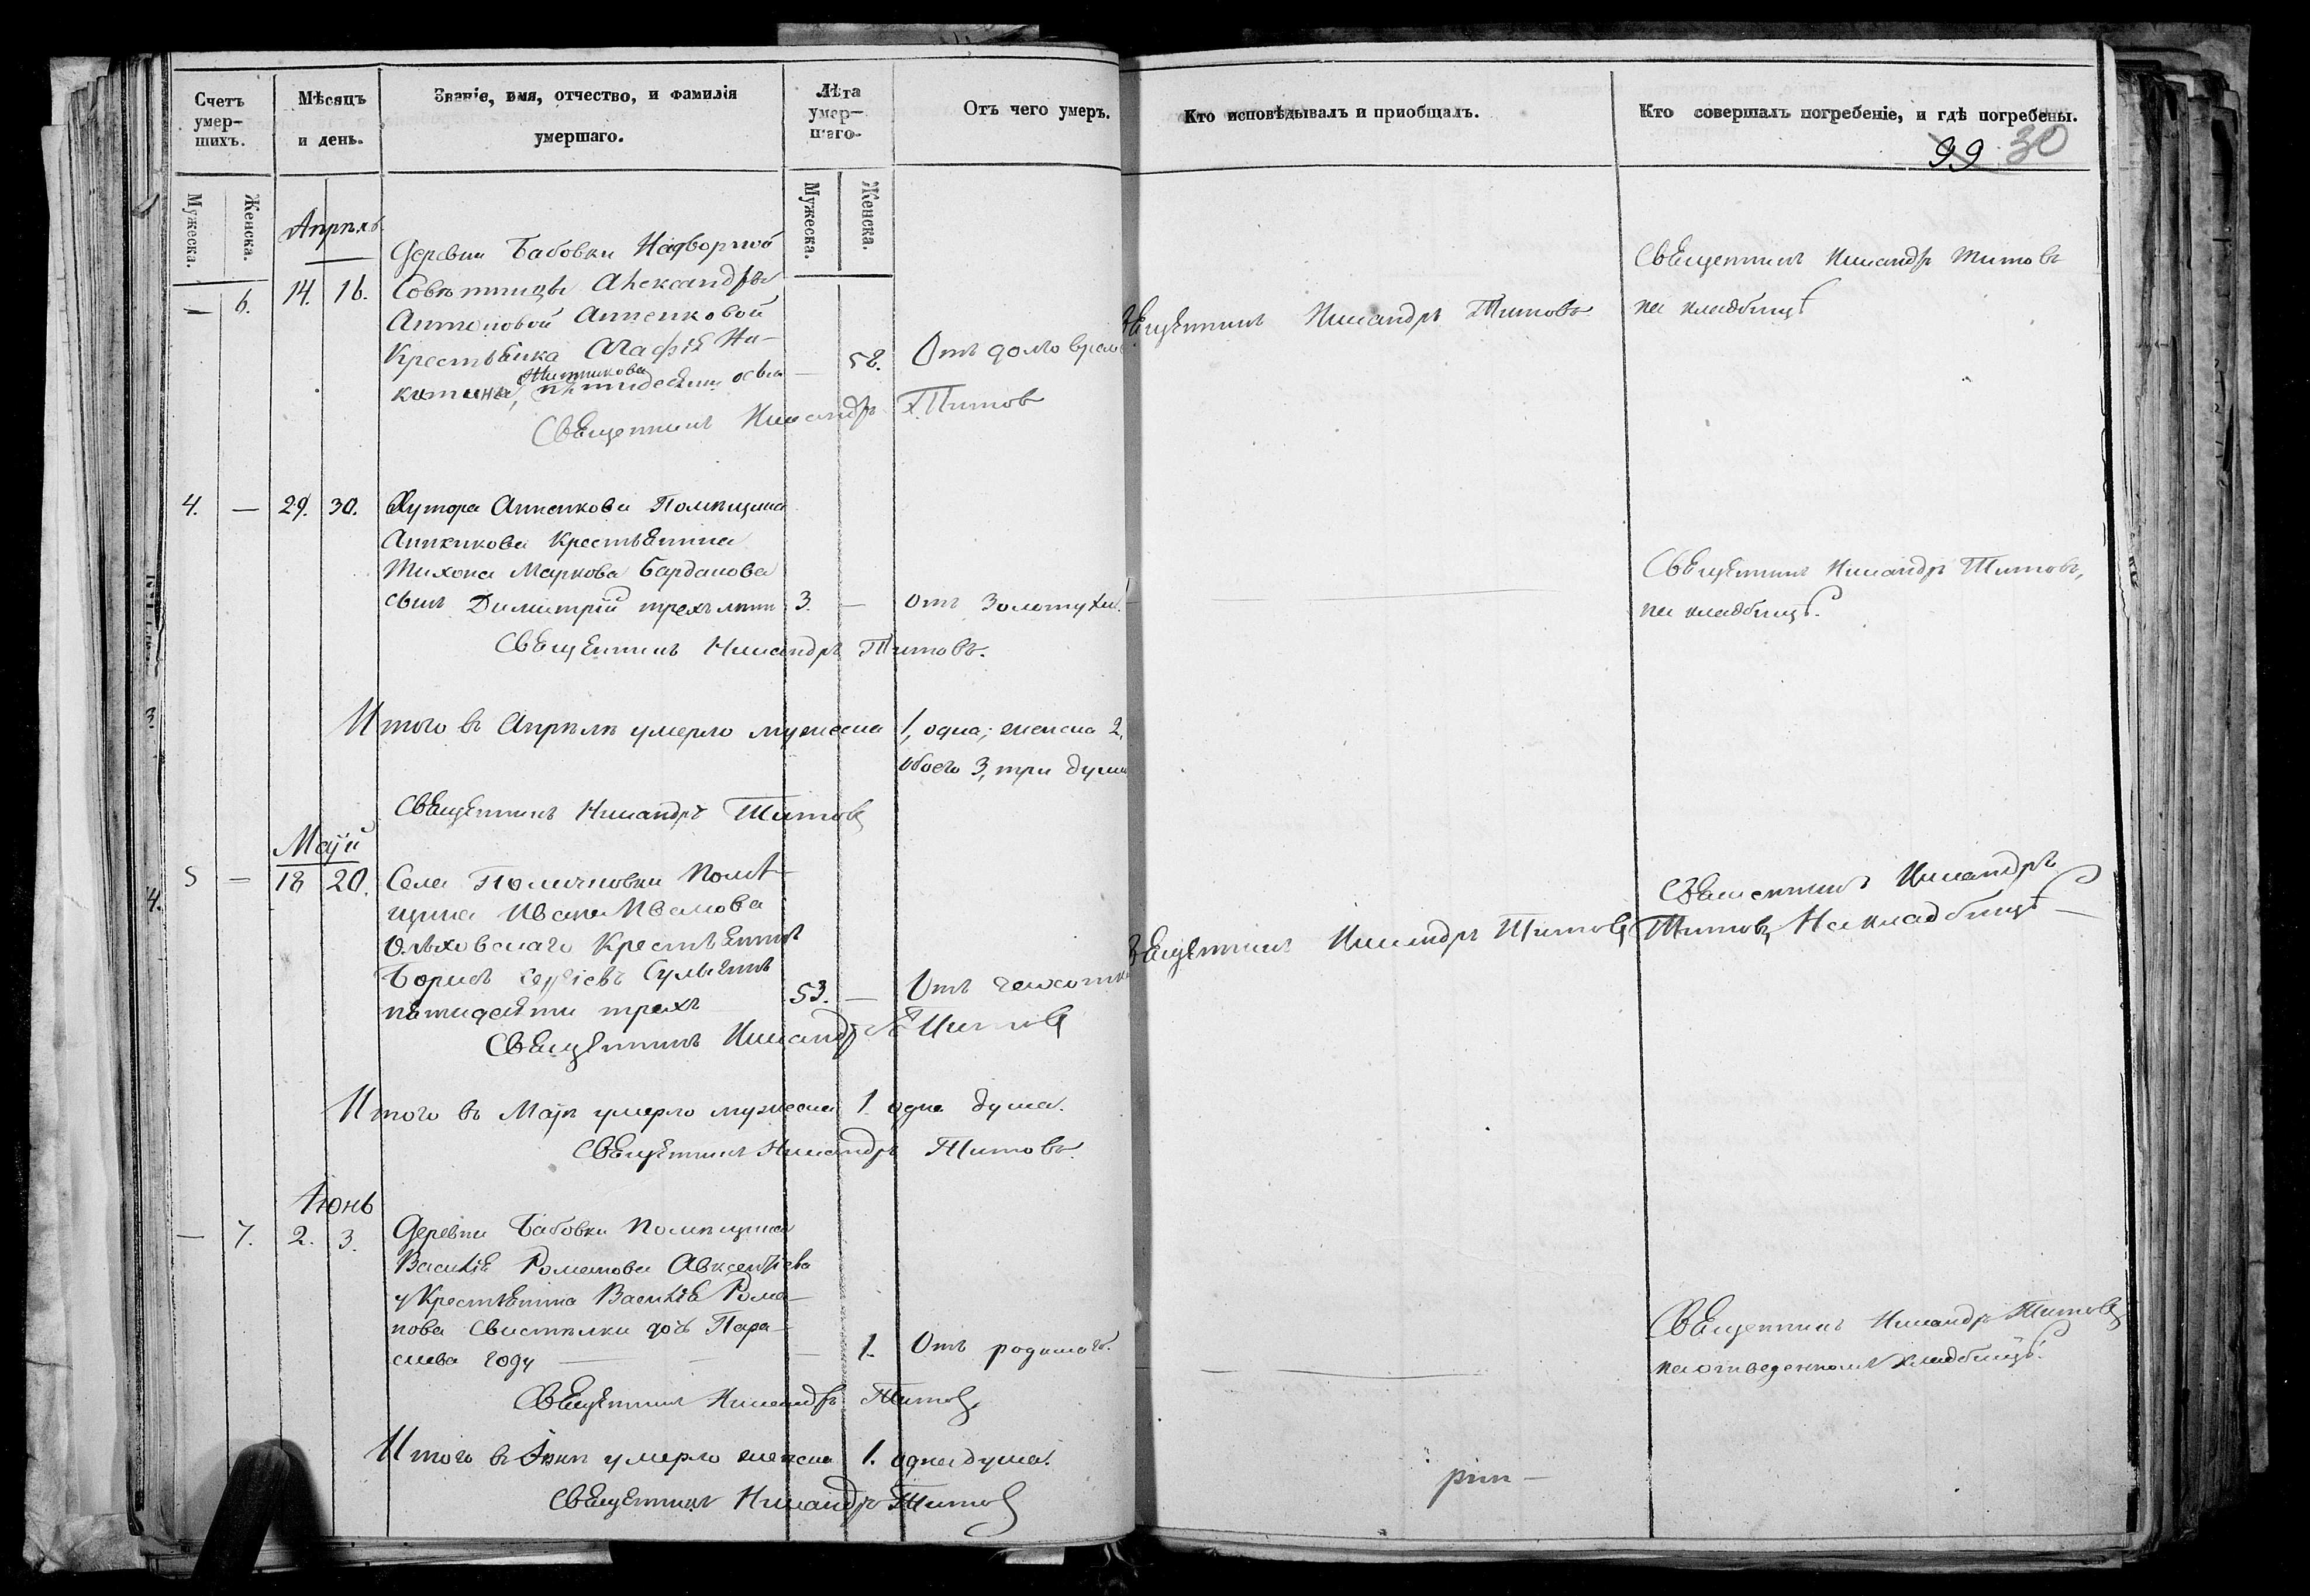 Счетъ умер-шихъ.
Мѣсяцъ и день.
Званіе, имя, отчество, и фамилія умершаго.
Лѣта умер-шаго.
Отъ чего умеръ.
Кто исповѣдывалъ и приобщалъ.
Кто совершалъ погребеніе, и гдѣ погребены.
99 30
Мужеска.
Женска.
Мужеска.
Женска.
Апрѣль
Деревни Бабовки Надворной
— 6. 14. 16. Совѣтницы Александры
Антоновой Анненковой
Крестьянка Агафія Ни-
китина, пятидесяти осьми — 58. Отъ долговрем
Священникъ Никандръ Титовъ
Священникъ Никандръ Титовъ
Священникъ Никандръ Титовъ
на кладбищѣ
4. — 29. 30. Хутора Анненкова Помѣщика
Анненкова Крестьянина
Тихона Маркова Барданова
сынъ Димитрій трехъ лѣтъ 3. — отъ золотухи.
Священникъ Никандръ Титовъ.
Священникъ Никандръ Титовъ,
на кладбищѣ.
Итого въ Апрѣлѣ умерло мужеска 1, одна; женска 2,
обоего 3, три души
Священникъ Никандръ Титовъ
Маій
5 — 18 20. Села Помѣ-
щика Ивана Иванова
Ольховскаго Крестьянинъ
Борисъ Сергіевъ
пятидесяти трехъ 53. — Отъ чахотки
Священникъ Никандръ Титовъ
Священникъ Никандръ Титовъ
Священникъ Никандръ
Титовъ, На кладбищѣ —
Итого въ Маіѣ умерло мужеска 1. одна душа.
Священникъ Никандръ Титовъ.
Іюнь
— 7. 2. 3. Деревни Бабовки Помѣщика
Василія Романова Авксентіева
у Крестьянина Василія Рома-
нова Свистелки дочь Пара-
скева году — 1. Отъ родимаго.
Священникъ Никандръ Титовъ.
Священникъ Никандръ Титовъ
на отведенномъ кладбищѣ.
Итого въ Іюнѣ умерло женска 1. одна душа.
Священникъ Никандръ Титовъ